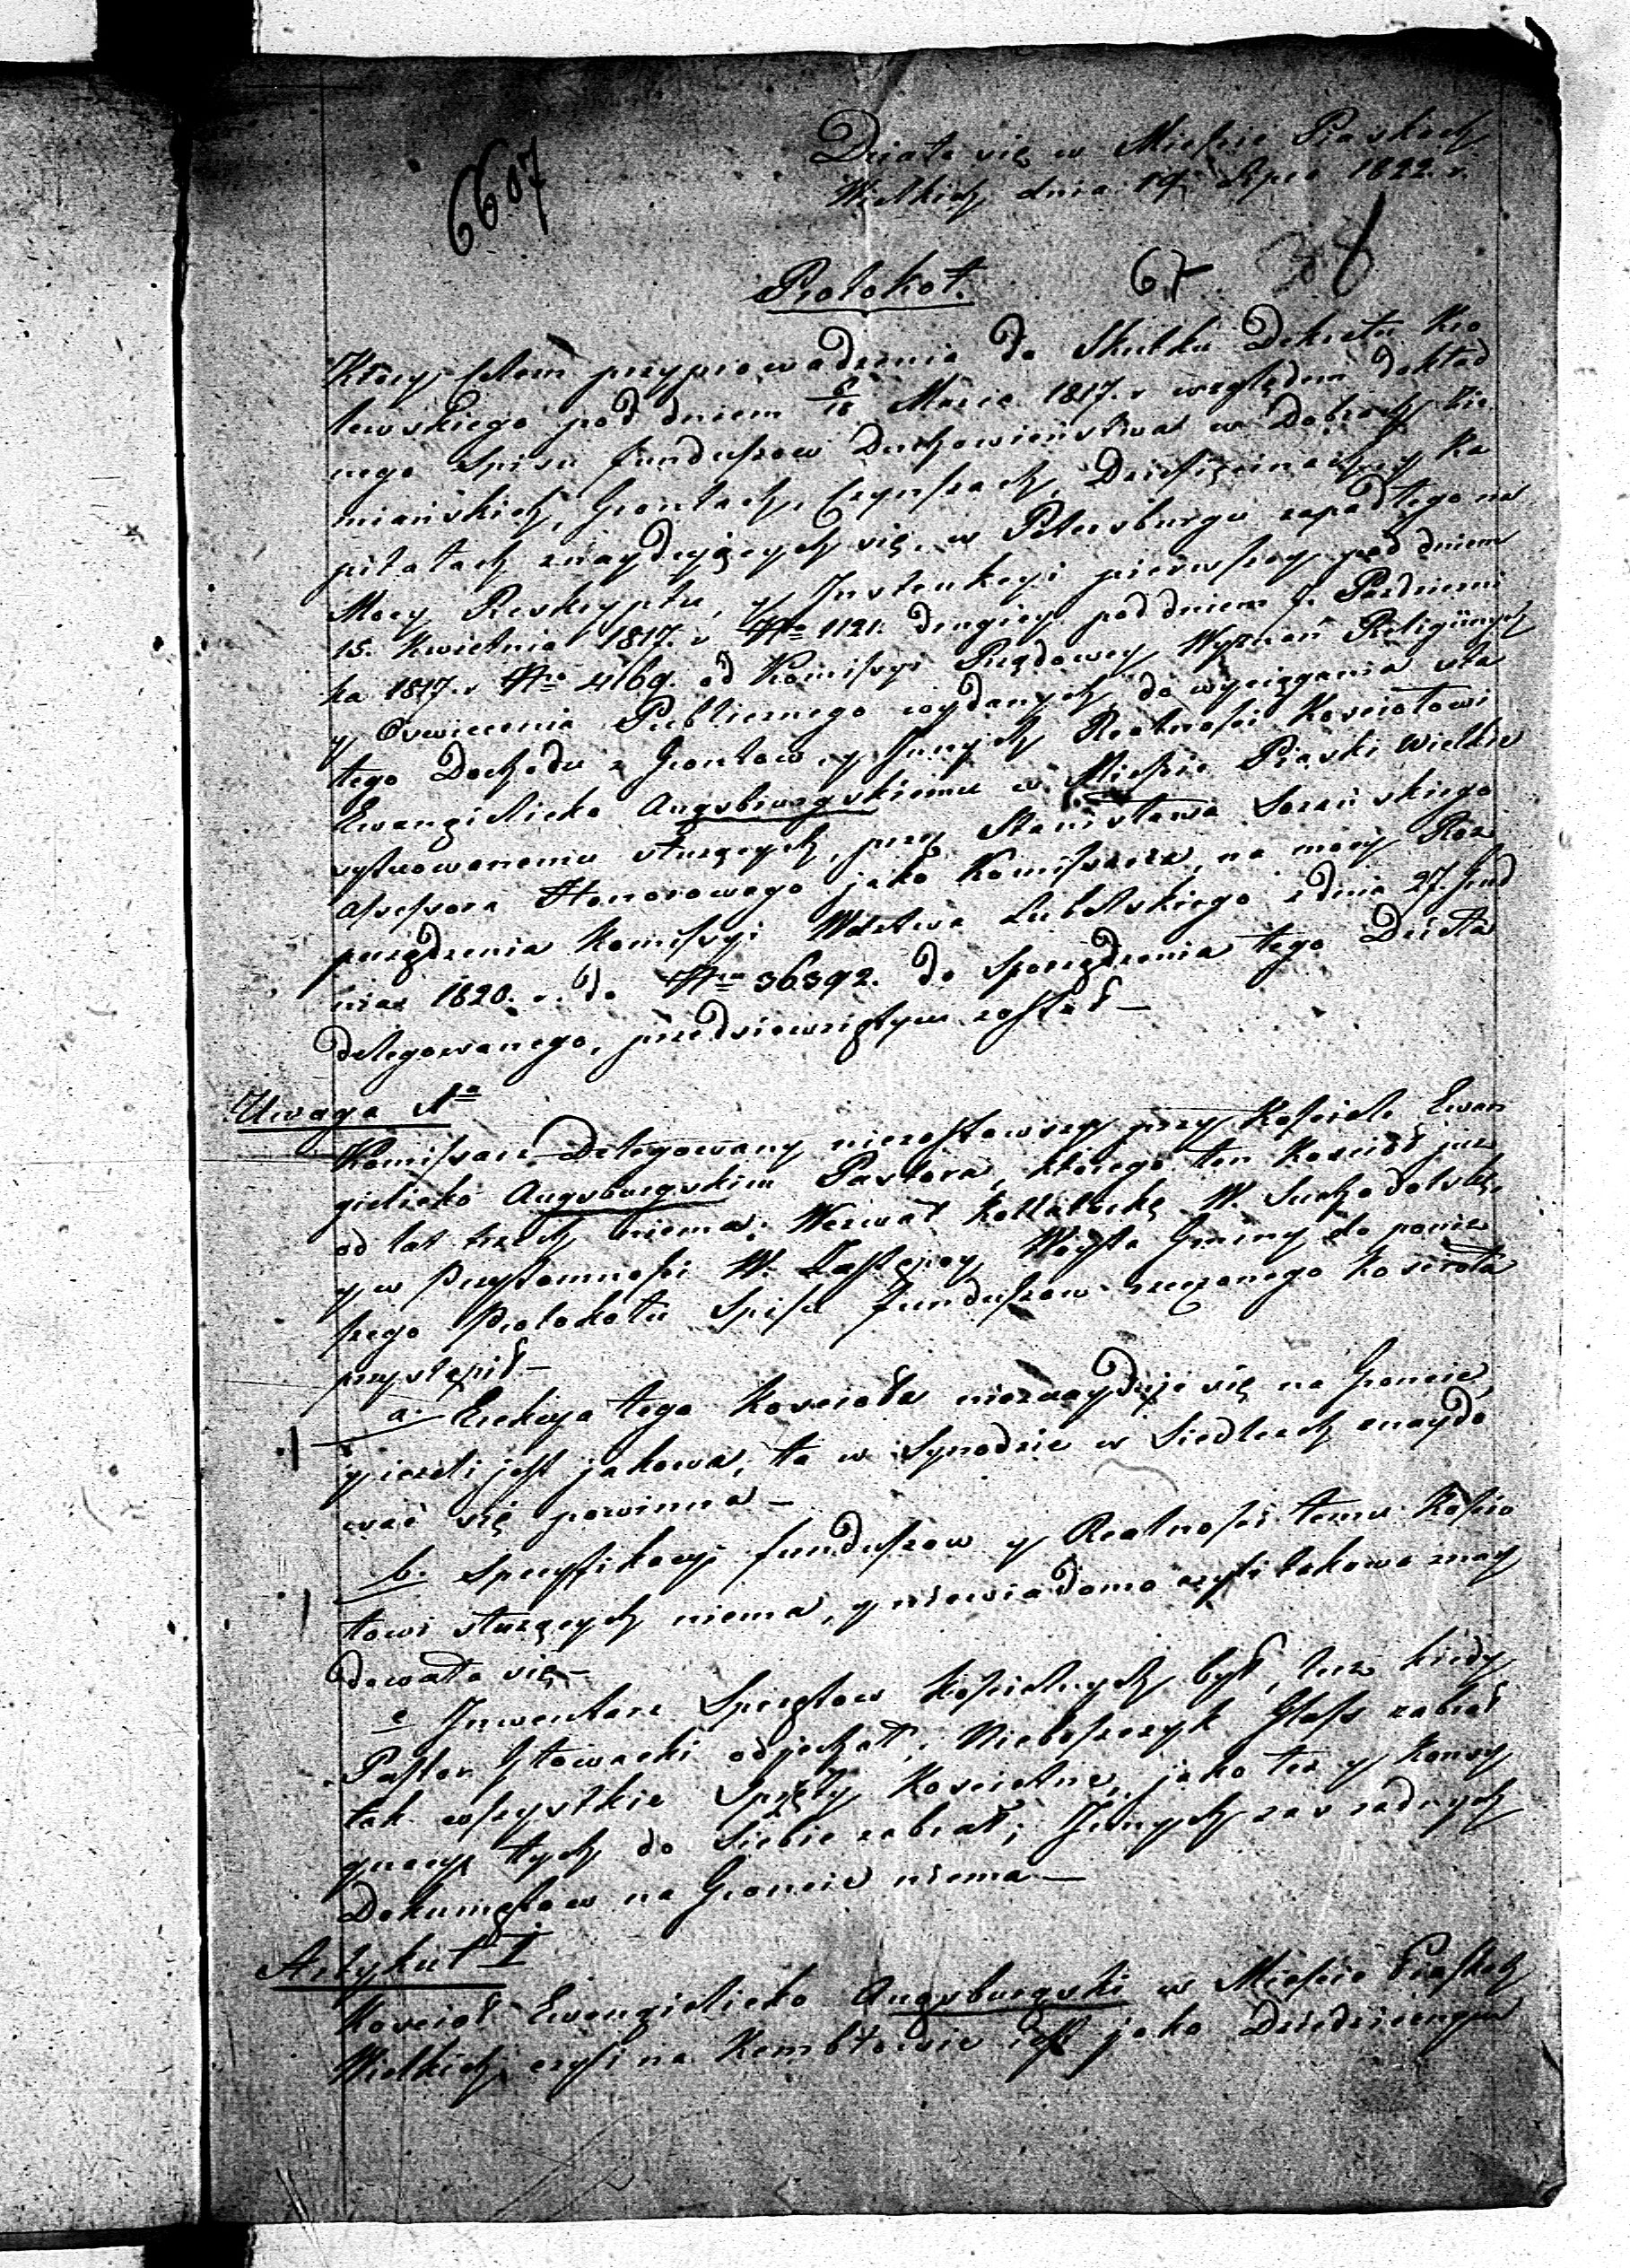 Działo się w Mieście Piaskach
Wielkich dnia 19 lipca 1822. r.
6607
67
Protokoł.
Który celem przyprowadzenia do Skutku Dekretu Kro
lewskiego pod dniem 6/18 Marca 1817. r względem dokład
nego Spisu funduszow Duchowieństwa w Dobrach Zie
miańskich, Grontach, Czynszach, Dziesięcinach y Ka
pitałach znaydujących się, w Petersburgu zapadłego na
Mocy Reskryptu, y Instrukcyi pierwszey pod dniem
15. Kwietnia 1817. r Nro 1121. drugiey pod dniem Pazdzierni
ka 1817. r Nro 4169. od Komissyi Rządowey Wyznań Religiinych
y Oswiecenia Publicznego wydanych, do wyciągania sta
tego Dochodu z Grontow, y Innych Realności Kosciołowi
Ewangielicko Augsburgskiemu w Mieście Piaski Wielkie
sytuowanemu służących, przez Stanisława Sozańskiego
Assessora Honorowego jako Komissarza, na mocy Roz
porządzenia Komissyi Wdztwa Lubelskiego z dnia 27. Grud
nia 1820. r. do Nro 36392. do Sporządzenia tego Dzieła
delegowanego, przedsiewziętym został —
Uwaga 1a
Komissarz Delegowany niezostawszy przy Kościele Ewan
gielicko Augsburgskim Pastora, którego ten Kościół już
od lat trzech niema; Wezwał Kollatorkę W. Suchodolską,
y w Przytomności W. Zastępcy Woyta Gminy do poniż
szego Protokołu Spisu Funduszow rzeczonego Kościoła
przystąpił —
a. Erekcya tego Kosciola nieznayduje się na Groncie,
y jezeli jest jakowa, ta w Synodzie w Siedlcach znaydo
wać się powinna —
b. Specyfikacyi funduszow y Realności temu Kościo
łowi służących niema, y niewiadomo czyli takowa znay
dowała się —
c Inwentarz Sprzętow Kościelnych był, lecz kiedy
Pastor Głowacki odjechał, Nieboszczyk Glass zabrał
tak wszystkie Sprzęty Koscielne, jako tez y Konsy
gnacyę tych do Siebie zabrał; Innych zas zadnych
Dokumętow na Groncie niema —
Artykuł I
Kosciół Ewangielicko Augsburgski w Mieście Piaskach
Wielkich czyli na Kembłowie jest jako Dziedzicznym